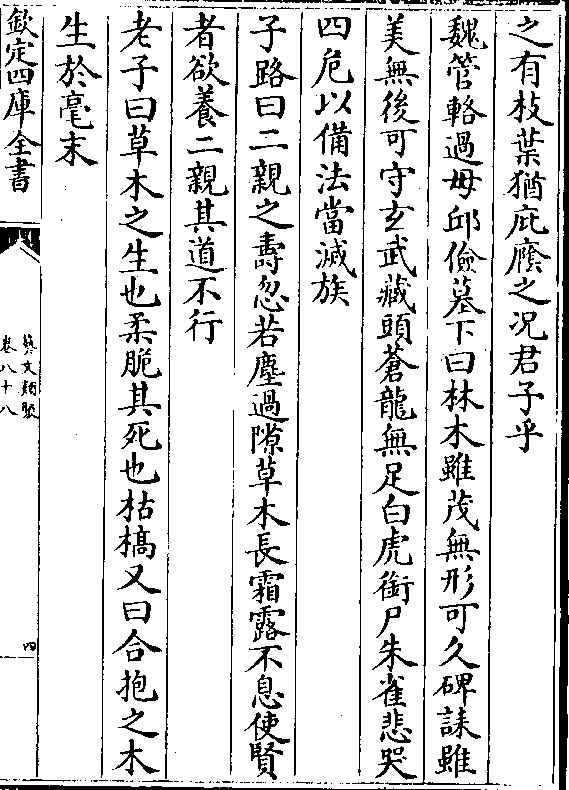 之有枝葉猶庇廕之况君子乎
魏管輅過毋邱儉墓下曰林木雖茂無形可久碑誄雖
美無後可守玄武藏頭蒼龍無足白虎銜尸朱雀悲哭
四危以備法當滅族
子路曰二親之壽忽若塵過隙草木長霜露不息使賢
者欲養二親其道不行
老子曰草木之生也柔脆其死也枯槁又曰合抱之木
生於毫末
欽定四庫全書
藝文類聚
卷八十八
四